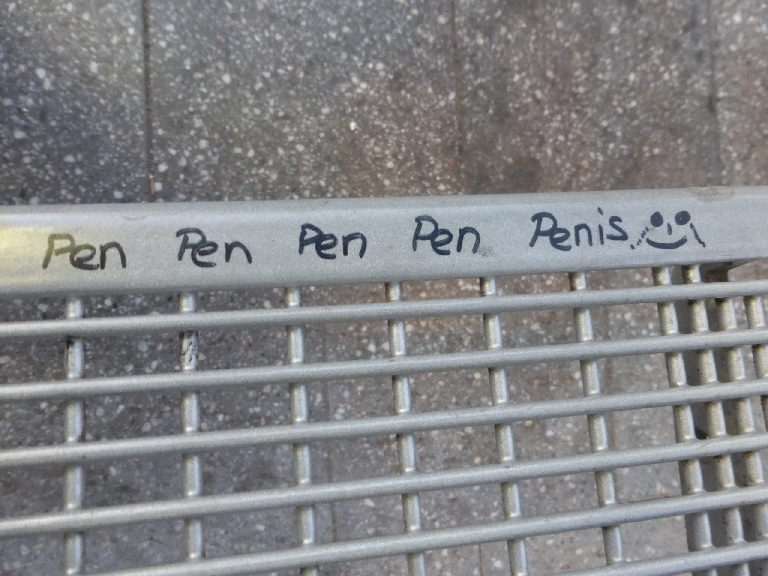 Pen Pen Pen Pen Penis